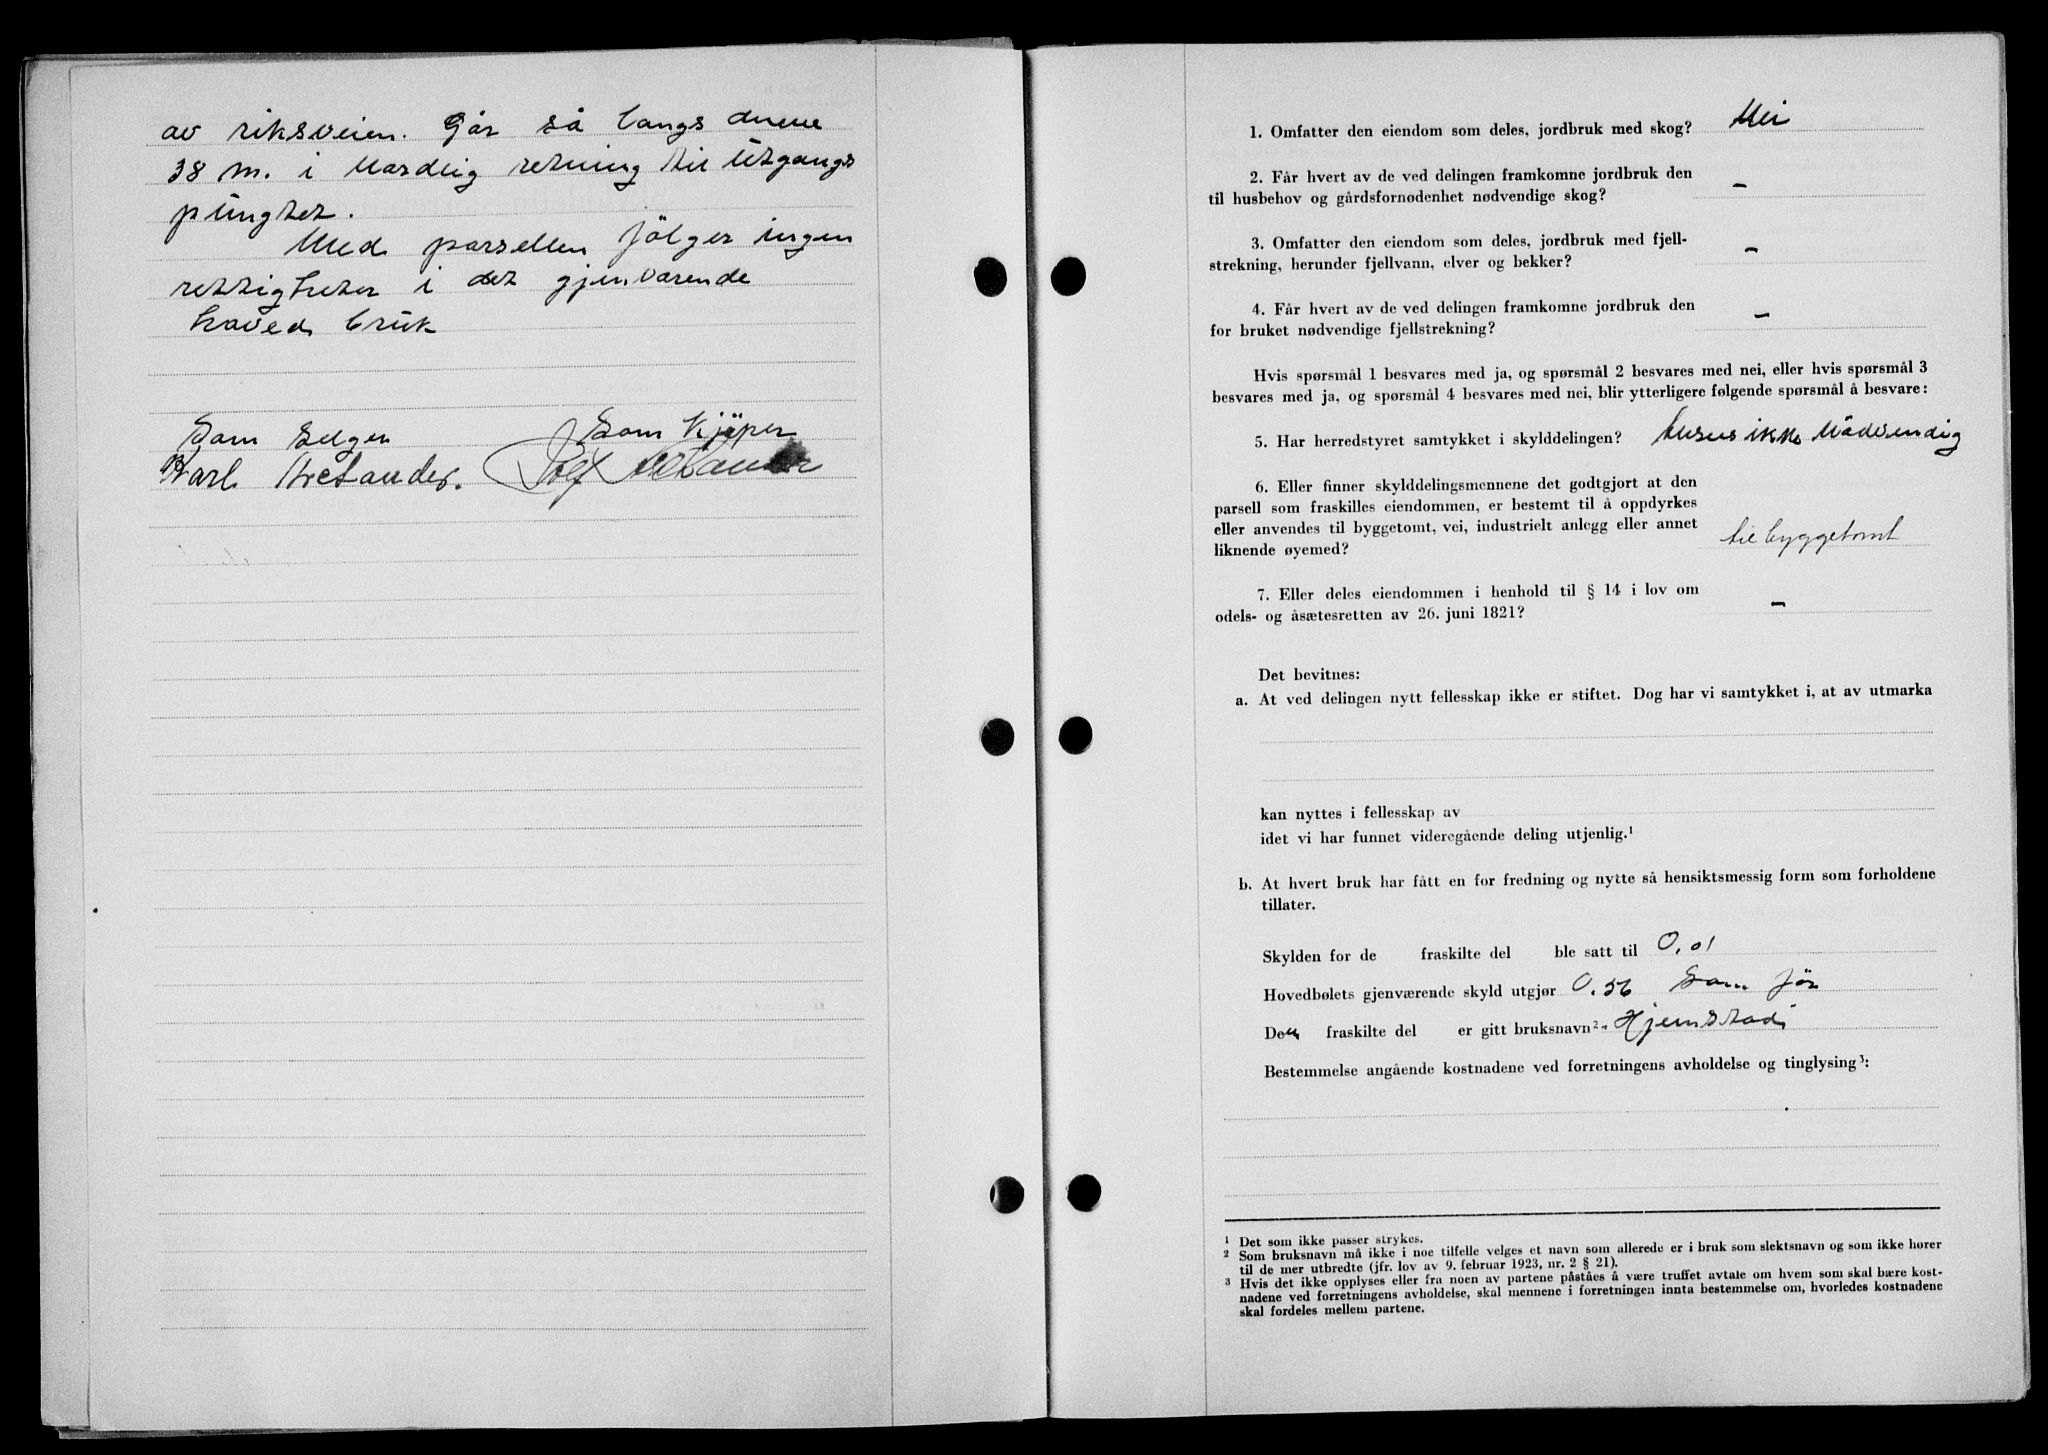 av riksveien. Går så langs denne
38 m. i Nordlig retning til Utgangs
pungtet.
Med parsellen følger ingen
rettigheter i det gjenværende
hoved bruk
Som Selger
Som Kjøper
Karl
1. Omfatter den eiendom som deles, jordbruk med skog? Nei
2. Får hvert av de ved delingen framkomne jordbruk den
til husbehov og gårdsfornødenhet nødvendige skog? –
3. Omfatter den eiendom som deles, jordbruk med fjell-
strekning, herunder fjellvann, elver og bekker? –
4. Får hvert av de ved delingen framkomne jordbruk den
for bruket nødvendige fjellstrekning? –
Hvis spørsmål 1 besvares med ja, og spørsmål 2 besvares med nei, eller hvis spørsmål 3
besvares med ja, og spørsmål 4 besvares med nei, blir ytterligere følgende spørsmål å besvare:
5. Har herredstyret samtykket i skylddelingen? ansees ikke Nødvendig
6. Eller finner skylddelingsmennene det godtgjort at den
parsell som fraskilles eiendommen, er bestemt til å oppdyrkes
eller anvendes til byggetomt, vei, industrielt anlegg eller annet
liknende øyemed? til byggetomt
7. Eller deles eiendommen i henhold til § 14 i lov om
odels- og åsætesretten av 26. juni 1821? –
Det bevitnes:
a. At ved delingen nytt fellesskap ikke er stiftet. Dog har vi samtykket i, at av utmarka
kan nyttes i fellesskap av
idet vi har funnet videregående deling utjenlig.¹
b. At hvert bruk har fått en for fredning og nytte så hensiktsmessig form som forholdene
tillater.
Skylden for de fraskilte del ble satt til 0,01
Hovedbølets gjenværende skyld utgjør 0.56 Som før
Den fraskilte del er gitt bruksnavn² Hjemstad
Bestemmelse angående kostnadene ved forretningens avholdelse og tinglysing³:
¹ Det som ikke passer strykes.
² Som bruksnavn må ikke i noe tilfelle velges et navn som allerede er i bruk som slektsnavn og som ikke hører
til de mer utbredte (jfr. lov av 9. februar 1923, nr. 2 § 21).
³ Hvis det ikke opplyses eller fra noen av partene påstås å være truffet avtale om hvem som skal bære kost-
nadene ved forretningens avholdelse, skal mennene i forretningen innta bestemmelse om, hvorledes kostnadene
skal fordeles mellem partene.